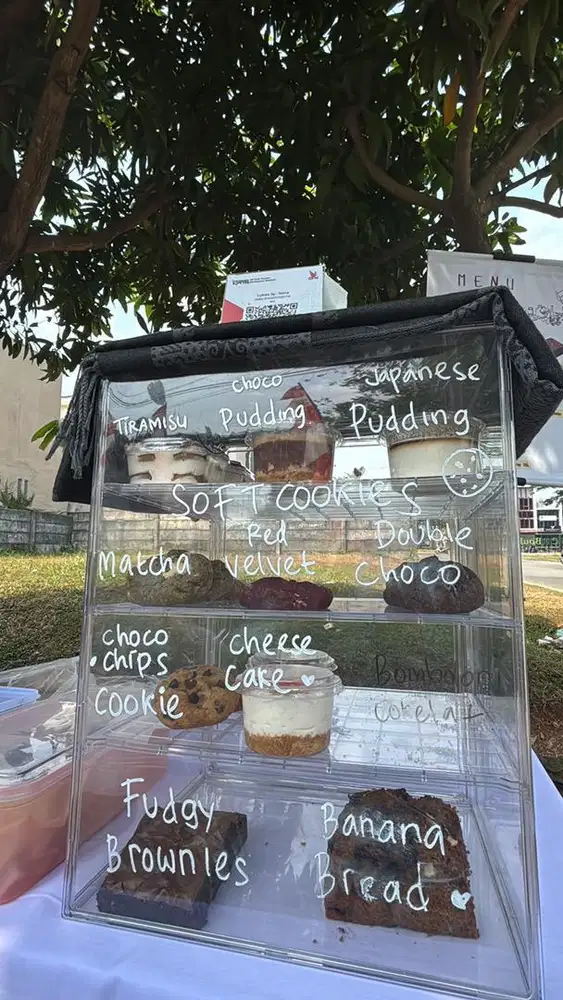 MENU
choco
Japanese
TIRAMISU
Pudding
Pudding
SOFT COOKIES
Red
Double
Matcha
Velvet
Choco
choco
chips
Cookie
cheese
Cake
Bomboloni
Cokelat
Fudgy
Brownies
Banana
Bread